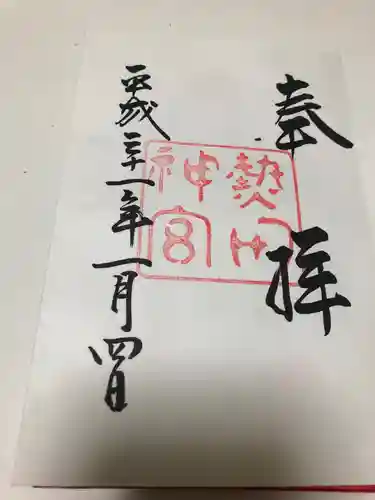 奉拝
熱田
神宮
平成三十一年一月四日